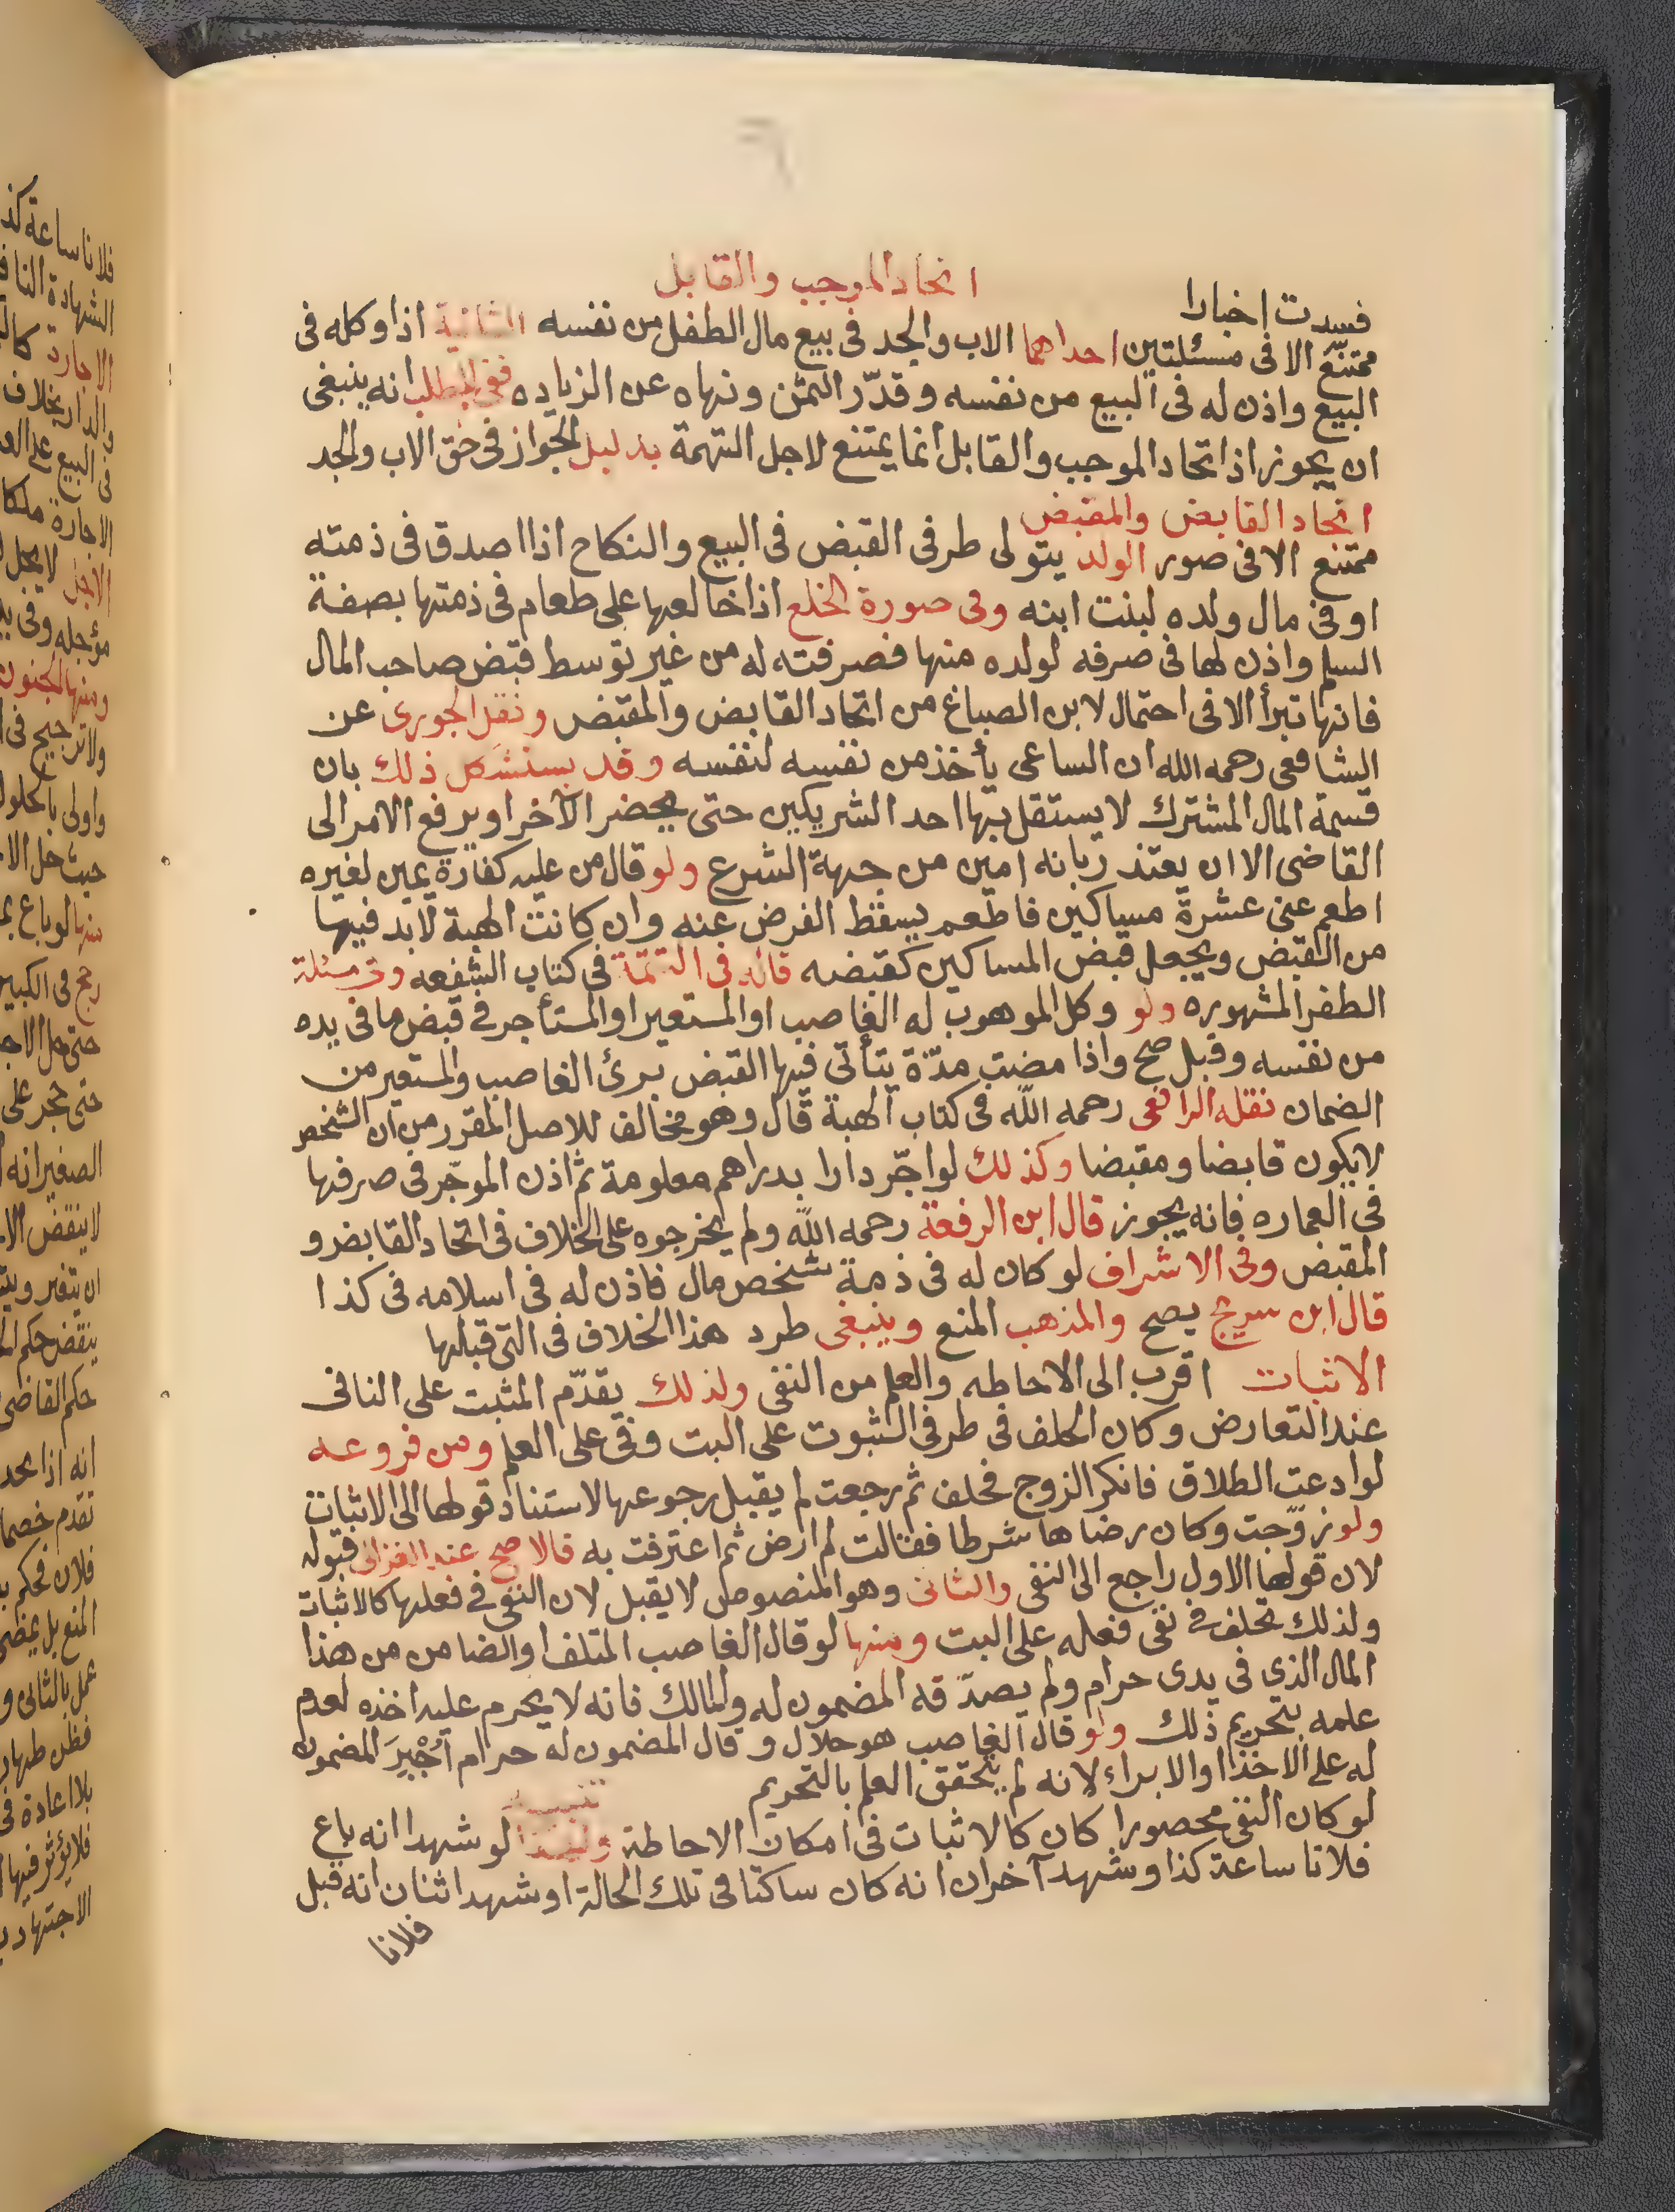 فسدت اخبارا اتحاد الموجب والقابل
ممتنع الا فى مسئلتين احداهما الاب والجد فى بيع مال الطفل من نفسه الثانية اذا وكله فى
البيع واذن له فى البيع من نفسه وقدّر الثمن ونهاه عن الزياده ففى المطلب انه ينبغى
ان يجوز اذ اتحاد الموجب والقابل انما يمتنع لاجل التهمة بدليل الجواز فى حق الاب والجد
اتحاد القابض والمقبض
ممتنع الا فى صور الولد يتولى طرفى القبض فى البيع والنكاح اذا اصدق فى ذمته
او فى مال ولده لبنت ابنه وفى صورة الخلع اذا خالعها على طعام فى ذمتها بصفة
السلم واذن لها فى صرفه لولده منها فصرفته له من غير توسط قبض صاحب المال
فانها تبرأ الا فى احتمال لابن الصباغ من اتحاد القابض والمقبض ونقل الجورى عن
الشافعى رحمه الله ان الساعى يأخذ من نفسه لنفسه وقد يستشكل ذلك بان
قسمة المال المشترك لا يستقل بها احد الشريكين حتى يحضر الآخر او يرفع الامر الى
القاضى الا ان يعتذر بانه امين من جهة الشرع ولو قال من عليه كفارة يمين لغيره
اطعم عنى عشرة مساكين فاطعم يسقط الفرض عنه وان كانت الهبة لابد فيها
من القبض ويجعل قبض المساكين كقبضه قاله فى التتمّة فى كتاب الشفعه وفى مسئلة
الظفر المشهوره ولو وكل الموهوب له الغاصب او المستعير او المستأجر فى قبض ما فى يده
من نفسه وقبل صح واذا مضت مدّة يتأتى فيها القبض برئ الغاصب والمستعير من
الضمان نقله الرافعى رحمه اللّه فى كتاب الهبة قال وهو مخالف للاصل المقرر من ان الشخص
لا يكون قابضا ومقبضا وكذلك لو اجّر دارا بدراهم معلومة ثم اذن الموجّر فى صرفها
فى العماره فانه يجوز قال ابن الرفعة رحمه اللّه ولم يخرجوه على الخلاف فى اتحاد القابض و
المقبض وفى الاشراف لو كان له فى ذمة شخص مال فاذن له فى اسلامه فى كذا
قال ابن سريج يصح والمذهب المنع وينبغى طرد هذا الخلاف فى التى قبلها
الاثبات اقرب الى الاحاطه والعلم من النفى ولذلك يقدّم المثبت على النافى
عند التعارض وكان الحلف فى طرفى الثبوت على البت وفى على العلم ومن فروعه
لو ادعت الطلاق فانكر الزوج فحلف ثم رجعت لم يقبل رجوعها لاستناد قولها الى الاثبات
ولو زوّجت وكان رضاها شرطا فقالت لم ارض ثم اعترفت به فالاصح عند الغزالى قبوله
لان قولها الاول راجع الى النفى والثانى وهو المنصوص لا يقبل لان النفى فى فعلها كالاثبات
ولذلك تحلف فى نفى فعله على البت ومنها لو قال الغاصب المتلف او الضامن من هذا
المال الذى فى يدى حرام ولم يصدّقه المضمون له والمالك فانه لا يحرم عليه اخذه لعدم
علمه بتحريم ذلك ولو قال الغاصب هو حلال وقال المضمون له حرام أُجْبِرَ المضمون
له على الاخذ او الابراء لانه لم يتحقق العلم بالتحريم تنبيه
لو كان النفى محصورا كان كالاثبات فى امكان الاحاطة ولهذا لو شهدا انه باع
فلانا ساعة كذا وشهد آخران انه كان ساكتا فى تلك الحالة او شهد اثنان انه قبل
فلانا